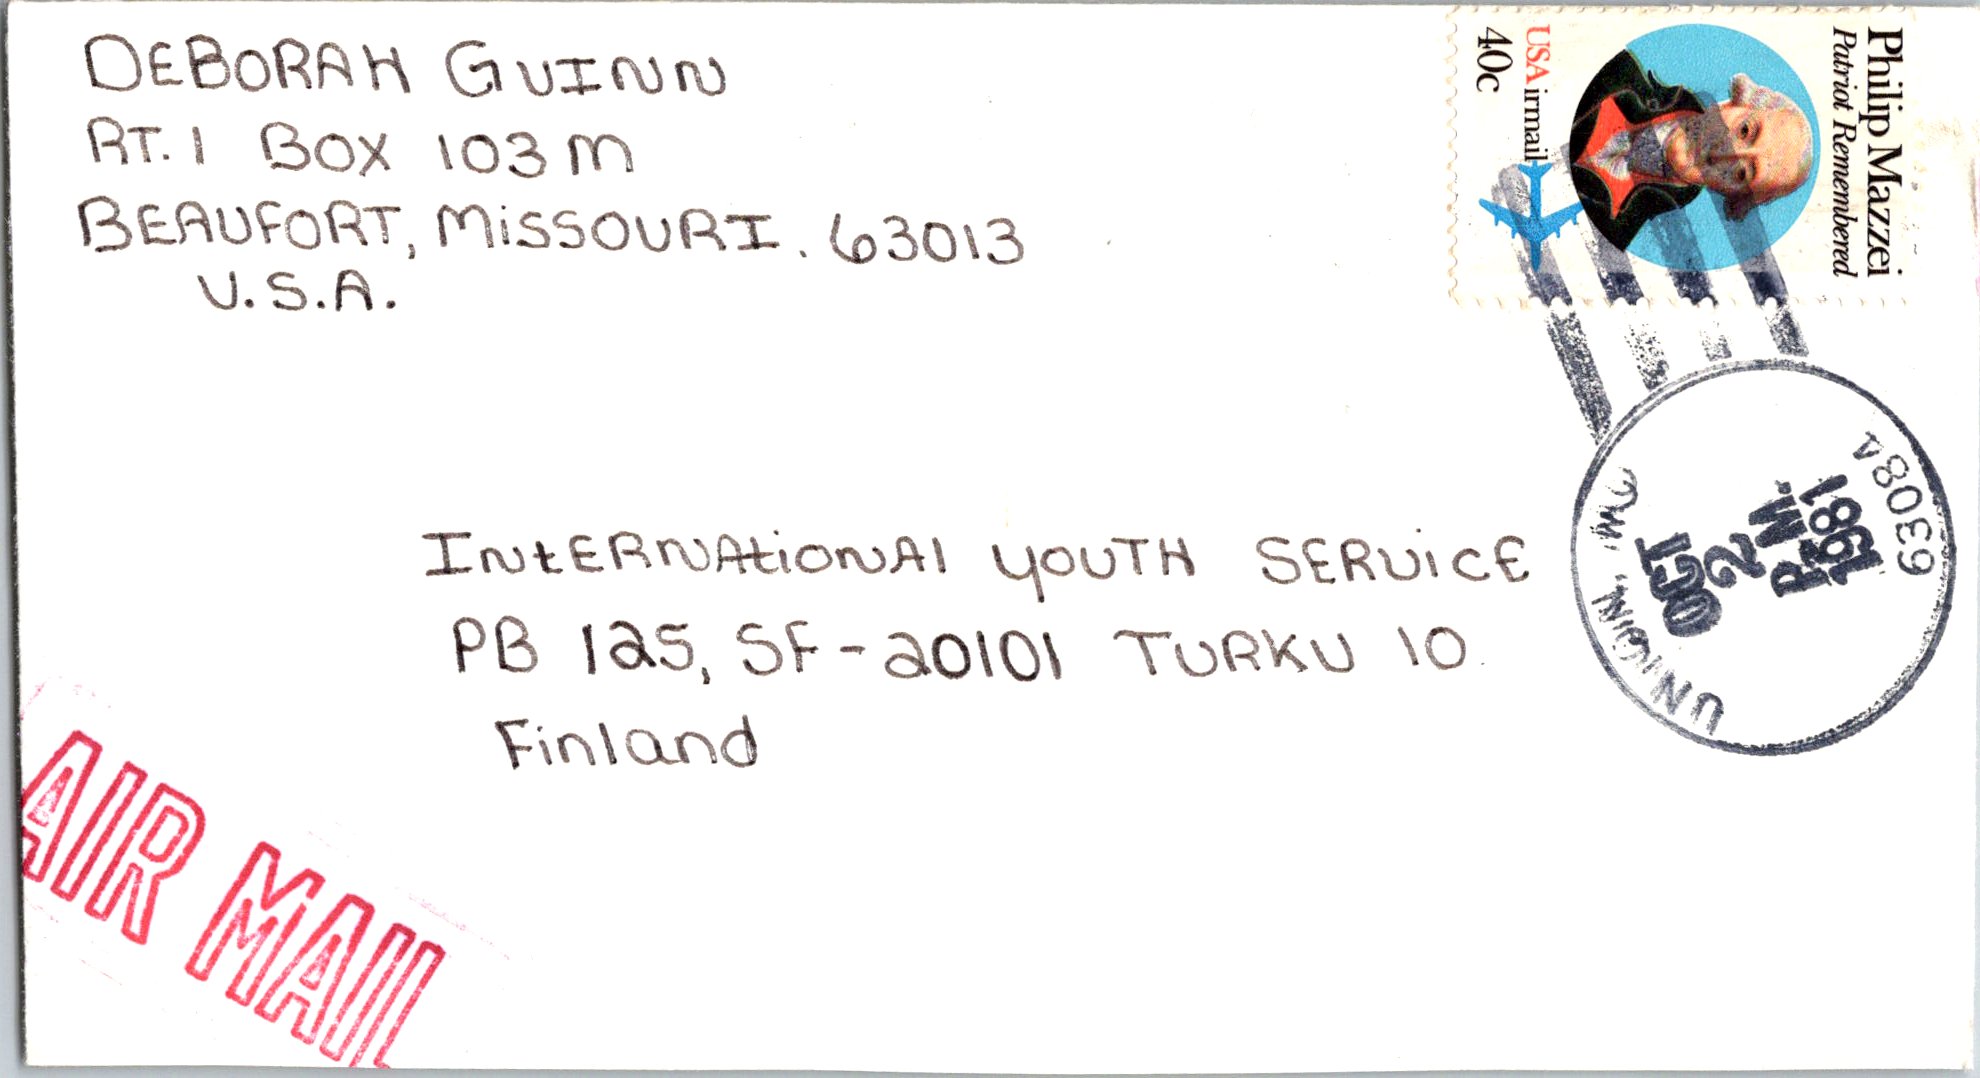 DEBORAH GUINN
RT. 1 BOX 103 M
BEAUFORT, MISSOURI. 63013
U.S.A.
Philip Mazzei
Patriot Remembered
USAirmail
40c
UNION, MO.
OCT
2
P.M.
1981
63084
INTERNATIONAL YOUTH SERVICE
PB 125, SF-20101 TURKU 10
Finland
AIR MAIL